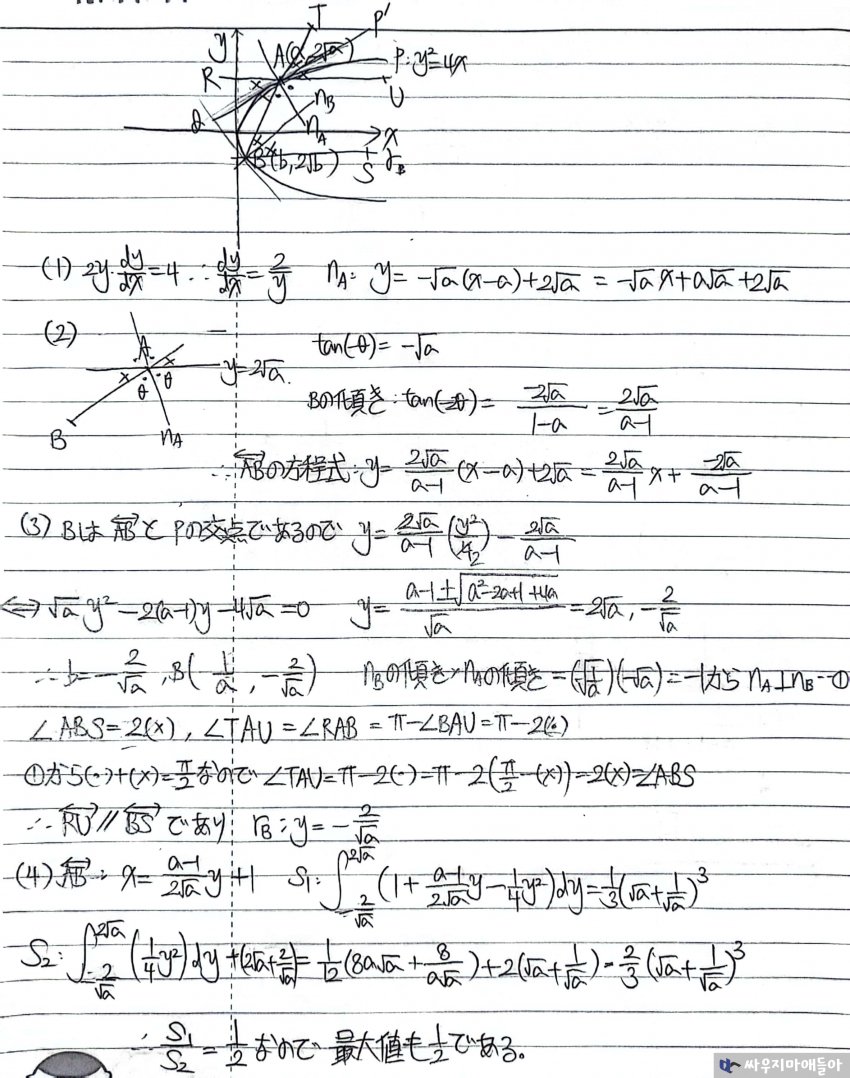 T
P'
y
A(a, 2√a)
R
P: y²=4x
U
Q
n_B
n_A
x
B(b, 2√b)
S
r_B
(1) 2y dy/dx = 4 ∴ dy/dx = 2/y n_A: y = -√a(x-a)+2√a = -√a x+a√a+2√a
(2)
A
× · × · θ θ
y=2√a.
B
n_A
tan(-θ) = -√a
Bの傾き: tan(-2θ) = -2√a/(1-a) = 2√a/(a-1)
∴ ABの方程式: y = 2√a/(a-1) (x-a)+2√a = 2√a/(a-1) x + -2√a/(a-1)
(3) Bは ABと Pの交点であるので y = 2√a/(a-1) (y²/4) - 2√a/(a-1)
⇔ √a y² - 2(a-1)y - 4√a = 0 y = (a-1±√(a²-2a+1+4a))/√a = 2√a, -2/√a
∴ b = -2/√a, B(1/a, -2/√a) n_Bの傾き×n_Aの傾き = (√(1/a))(-√a) = -1から n_A⊥n_B…①
∠ABS = 2(×), ∠TAU = ∠RAB = π-∠BAU = π-2(·)
①から(·)+(×) = π/2 なので ∠TAU = π-2(·) = π-2(π/2-(×)) = 2(×) = ∠ABS
∴ RU // BS であり r_B: y = -2/√a
(4) AB: x = (a-1)/(2√a) y + 1 S₁: ∫_{-2/√a}^{2√a} (1 + (a-1)/(2√a) y - 1/4 y²) dy = 1/3 (√a + 1/√a)³
S₂: ∫_{-2/√a}^{2√a} (1/4 y²) dy + (2√a + 2/√a) = 1/12 (8a√a + 8/(a√a)) + 2(√a + 1/√a) = 2/3 (√a + 1/√a)³
∴ S₁/S₂ = 1/2 なので 最大値も 1/2 である。
싸우지마얘들아